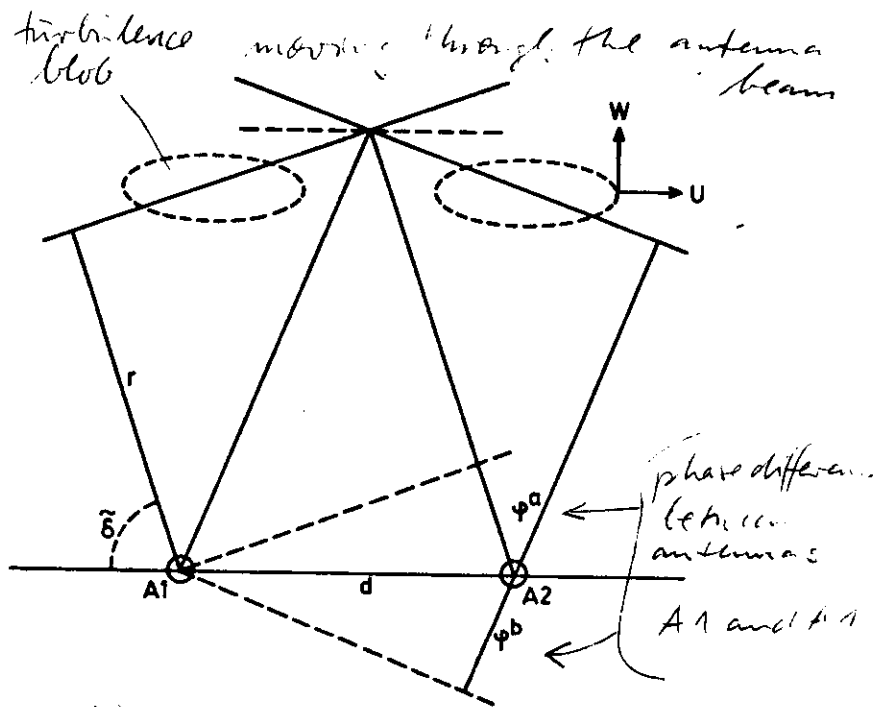 turbulence moving through the antenna
blob beam
W
U
r
δ̃
φᵃ
A1
d
A2
φᵇ
phase differen
between
antennas
A1 and A1